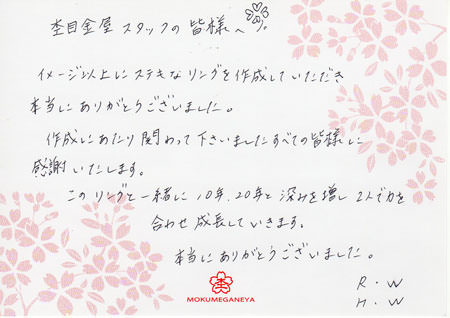 杢目金屋 スタッフの皆様へ
イメージ以上にステキなリングを作成していただき
本当にありがとうございました。
作成にあたり関わって下さいましたすべての皆様に
感謝いたします。
このリングと一緒に10年、20年と深みを増し2人で力を
合わせ成長していきます。
本当にありがとうございました。
MOKUMEGANEYA
R.W
H.W